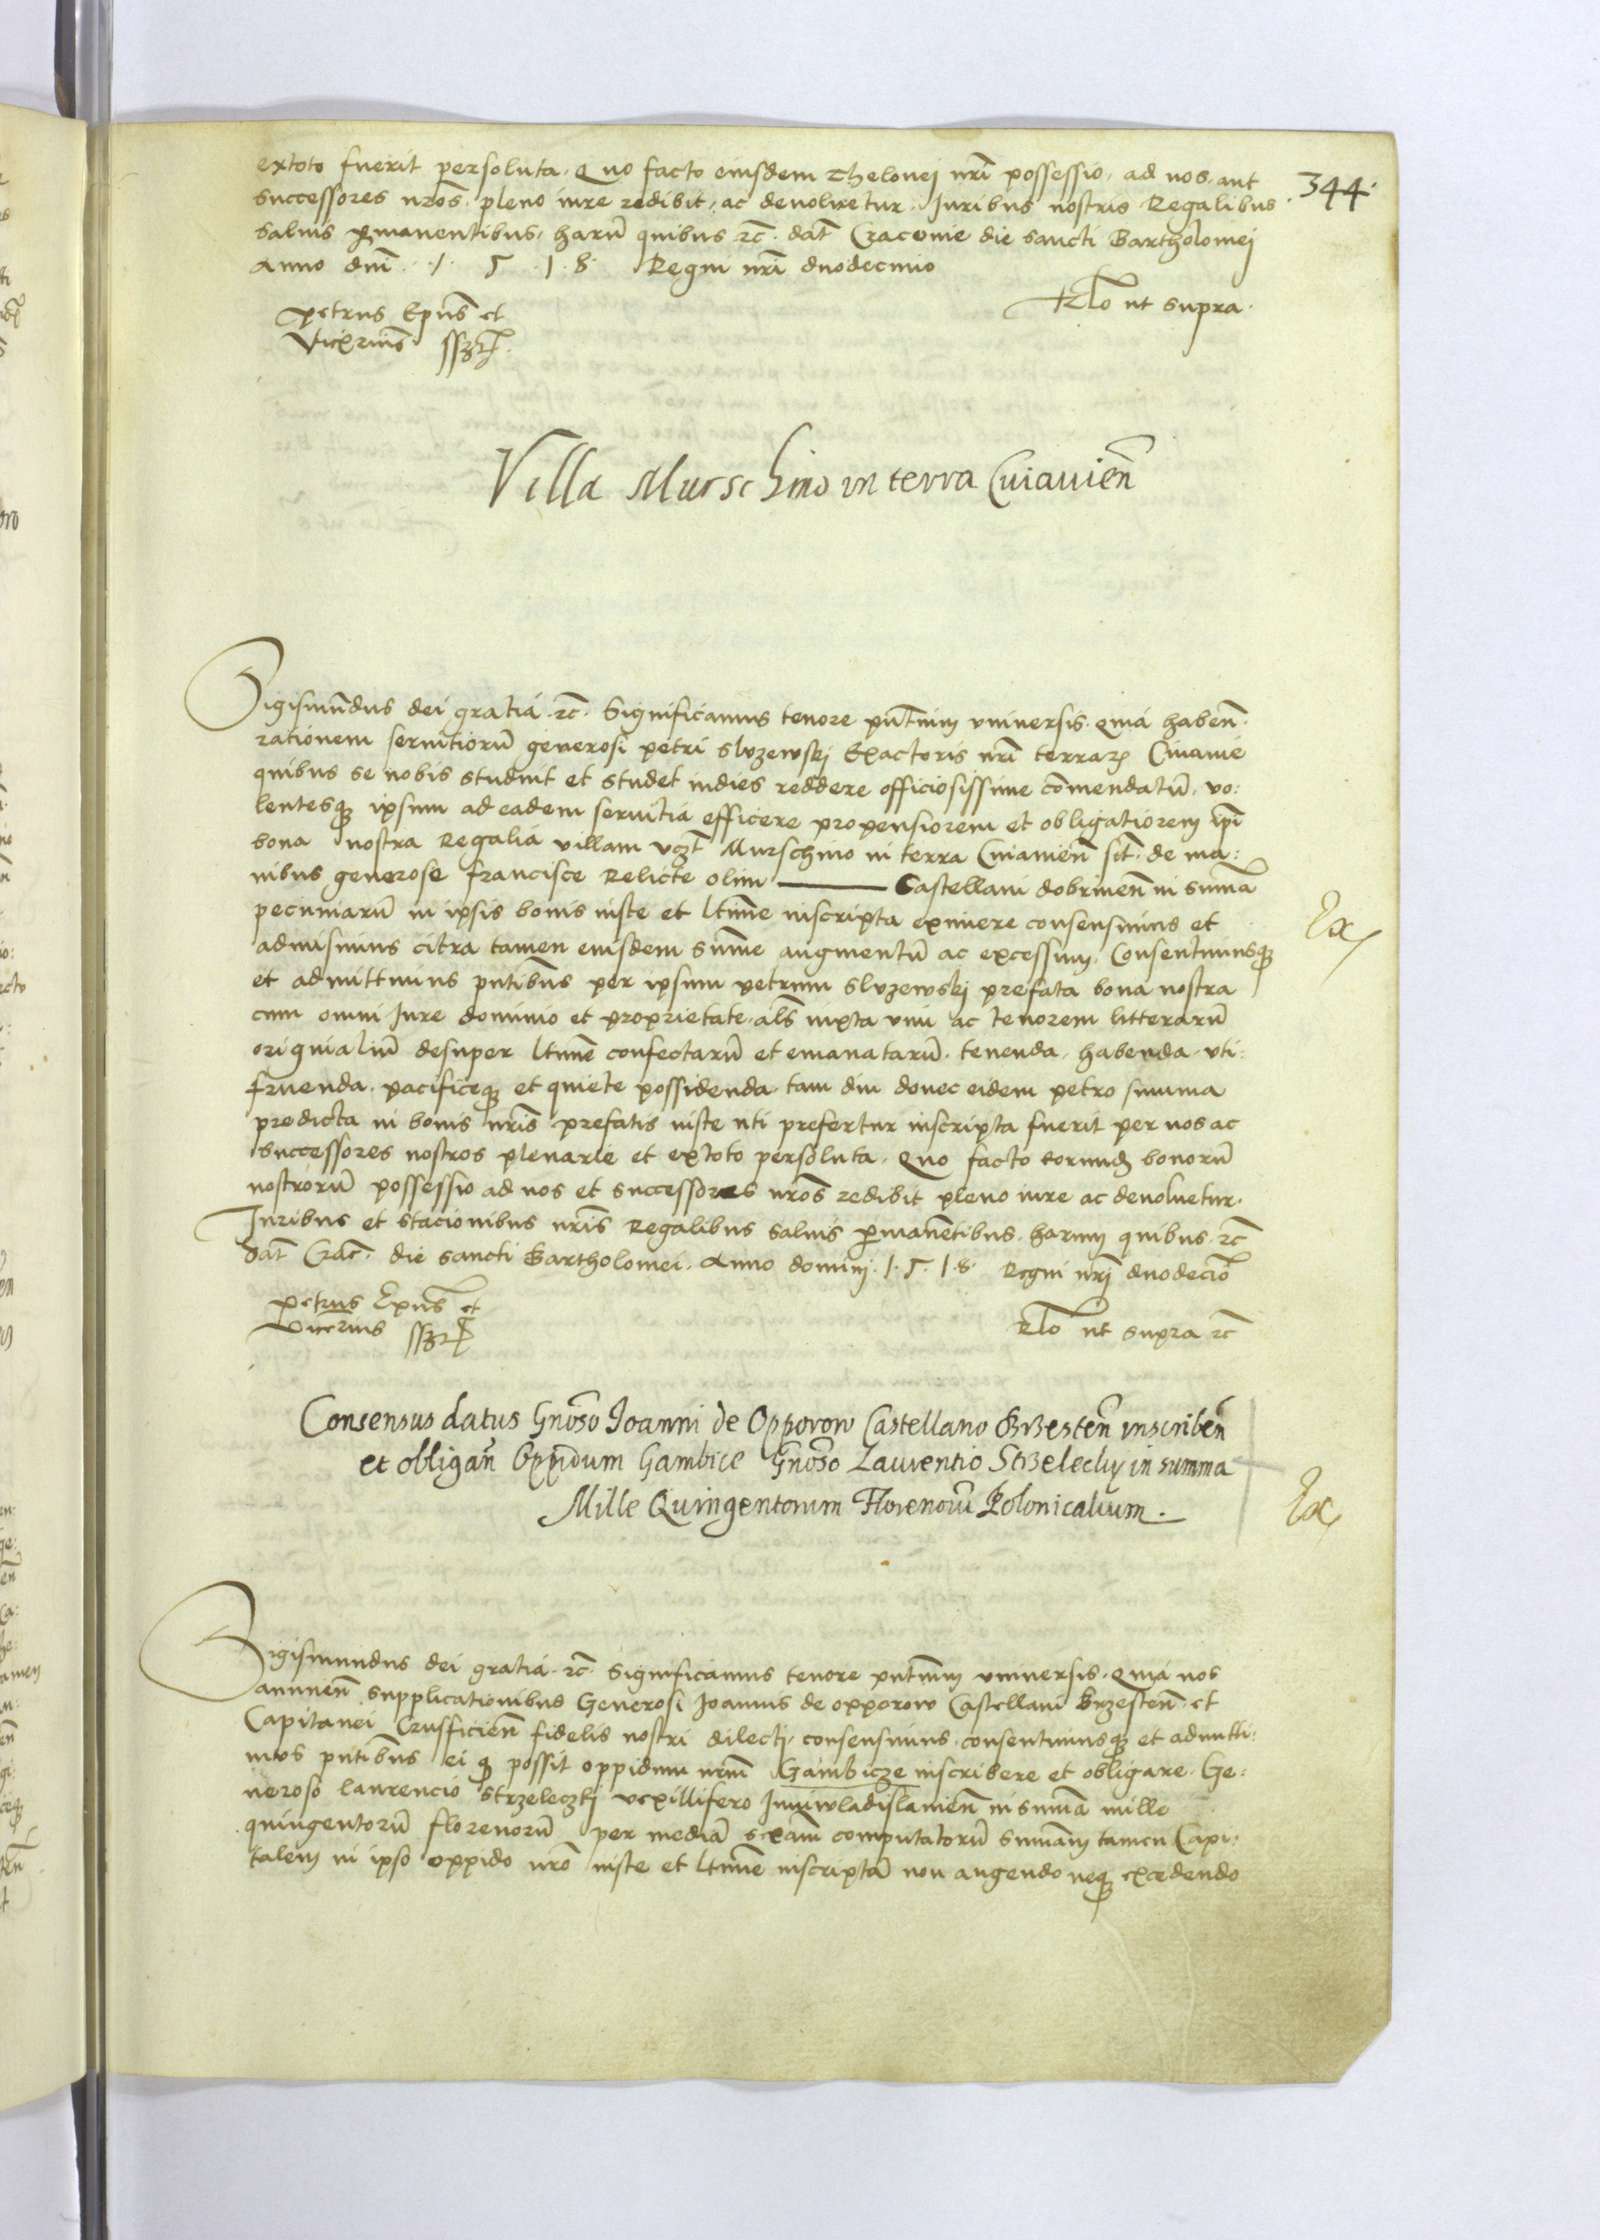 extoto fuerit persoluta. Quo facto eiusdem Thelonej nrī possessio, ad nos, aut
successores nros̄. pleno iure redibit, ac devolvetur. Iuribus nostris Regalibus.
344.
salvis p̱manentibus, harū quibus ꝛc̄. dat̄ Cracovie die sancti Bartholomej
Anno dn̄i. 1. 5. 1. 8. Regni nrī duodecimo
Petrus Ep̄us et
Rl̄o ut supra.
Vicꝛius̄ sszt
Villa Murschino in terra Cuiauien̄
Sigismūdus dei gratiá. ꝛc̄. Significamus tenore pn̄tium universis. quiá haben̄.
rationem servitiorū generosi petri Sluzewskj Exactoris nrī terraꝝ Cuiavie
quibus se nobis studuit et studet indies reddere officiosissime cōmendatū, vo:
lentesqꝫ ipsum ad eadem servitiá efficere propensiorem et obligatiorem ipī
bona nostra Regaliá villam vcꝫt Murschino in terra Cuiavien̄ sit̄. de ma:
nibus generose Francisce Relicte olim ——— Castellani dobrinen̄ in sum̄a
pecuniarū in ipsis bonis iuste et l̄time inscripta eximere consensimus et
admisimus citra tamen eiusdem sum̄e augmentū ac excessum. Consentimusqꝫ
Ex
et admittimus pn̄tibus per ipsum petrum Sluzewskj prefata bona nostra
cum omni Iure dominio et proprietate. als̄ iuxta vim ac tenorem litterarū
originaliū desuper l̄time confectarū et emanatarū. tenenda, habenda, uti:
fruenda. pacificeqꝫ et quiete possidenda. tam diu donec eidem petro summa
predicta in bonis nrīs prefatis iuste uti prefertur inscripta fuerit per nos ac
successores nostros plenarie et extoto persoluta. Quo facto eorundꝫ bonorū
nostrorū possessio ad nos et successores nros̄ redibit pleno iure ac devolvetur.
Iuribus et stacionibus nrīs Regalibus salvis p̱manētibus. harum quibus. ꝛc̄
dat̄ Crac̄. die sancti Bartholomei. Anno dominj. 1. 5. 1. 8. Regni nrj̄ duodecīo
Petrus Ep̄us et
Vicꝛius sszt
Rl̄o ut supra ꝛc̄
Consensus datus Gn̄oso Joanni de Opporow Castellano Brzesten̄ inscriben̄
et obligan̄ Oppidum Gambice Gn̄oso Laurentio Strzelecky in summa
Mille Quingentorum Florenorū Polonicalium.
Ex
Sigismundus dei gratiá. ꝛc̄. Significamus tenore pn̄tium universis. quiá nos
annuen̄ supplicationibus Generosi Ioannis de opporow Castellani Brzesten̄. et
Capitanei Crusficien̄ fidelis nostri dilectj. consensimus. consentimusqꝫ et admitti:
mus pn̄tibus ei qꝫ possit oppidum nrūm Gambicze inscribere et obligare. Ge:
neroso laurencio Strzeleczkj vexillifero Iuniwladislavien̄ in sum̄a mille
quingentorū florenorū per mediā sexām computatorū sum̄am tamen Capi:
talem in ipso oppido nro̅ iuste et l̄time inscriptā non augendo neqꝫ excedendo